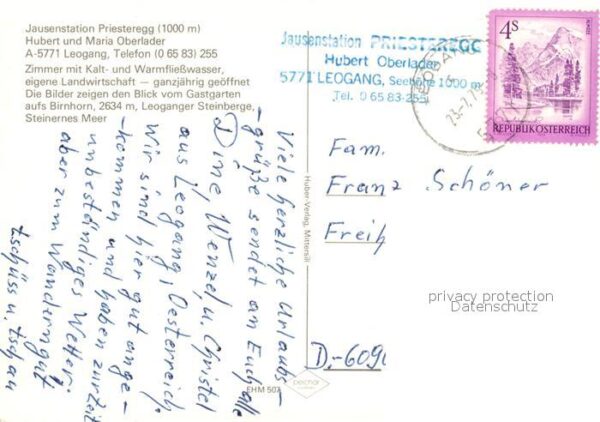 Jausenstation Priesteregg (1000 m)
Hubert und Maria Oberlader
A-5771 Leogang, Telefon (0 65 83) 255
Zimmer mit Kalt- und Warmfließwasser,
eigene Landwirtschaft — ganzjährig geöffnet
Die Bilder zeigen den Blick vom Gastgarten
aufs Birnhorn, 2634 m, Leoganger Steinberge,
Steinernes Meer
Viele herzliche Urlaubs-
-grüße sendet an Euch alle
Dine Wenzel u. Christel
aus Leogang, Oesterreich.
Wir sind hier gut ange-
-kommen und haben zur Zeit
unbeständiges Wetter.
aber zum Wandern gut
tschüss u. tschau
EHM 507
Huber-Verlag, Mittersill
Jausenstation PRIESTEREGG
Hubert Oberlader
5771 LEOGANG, Seehöhe 1000 m
Tel. 0 65 83-255
4S
REPUBLIK ÖSTERREICH
Fam.
Franz Schöner
Freih
privacy protection
Datenschutz
D.-6090